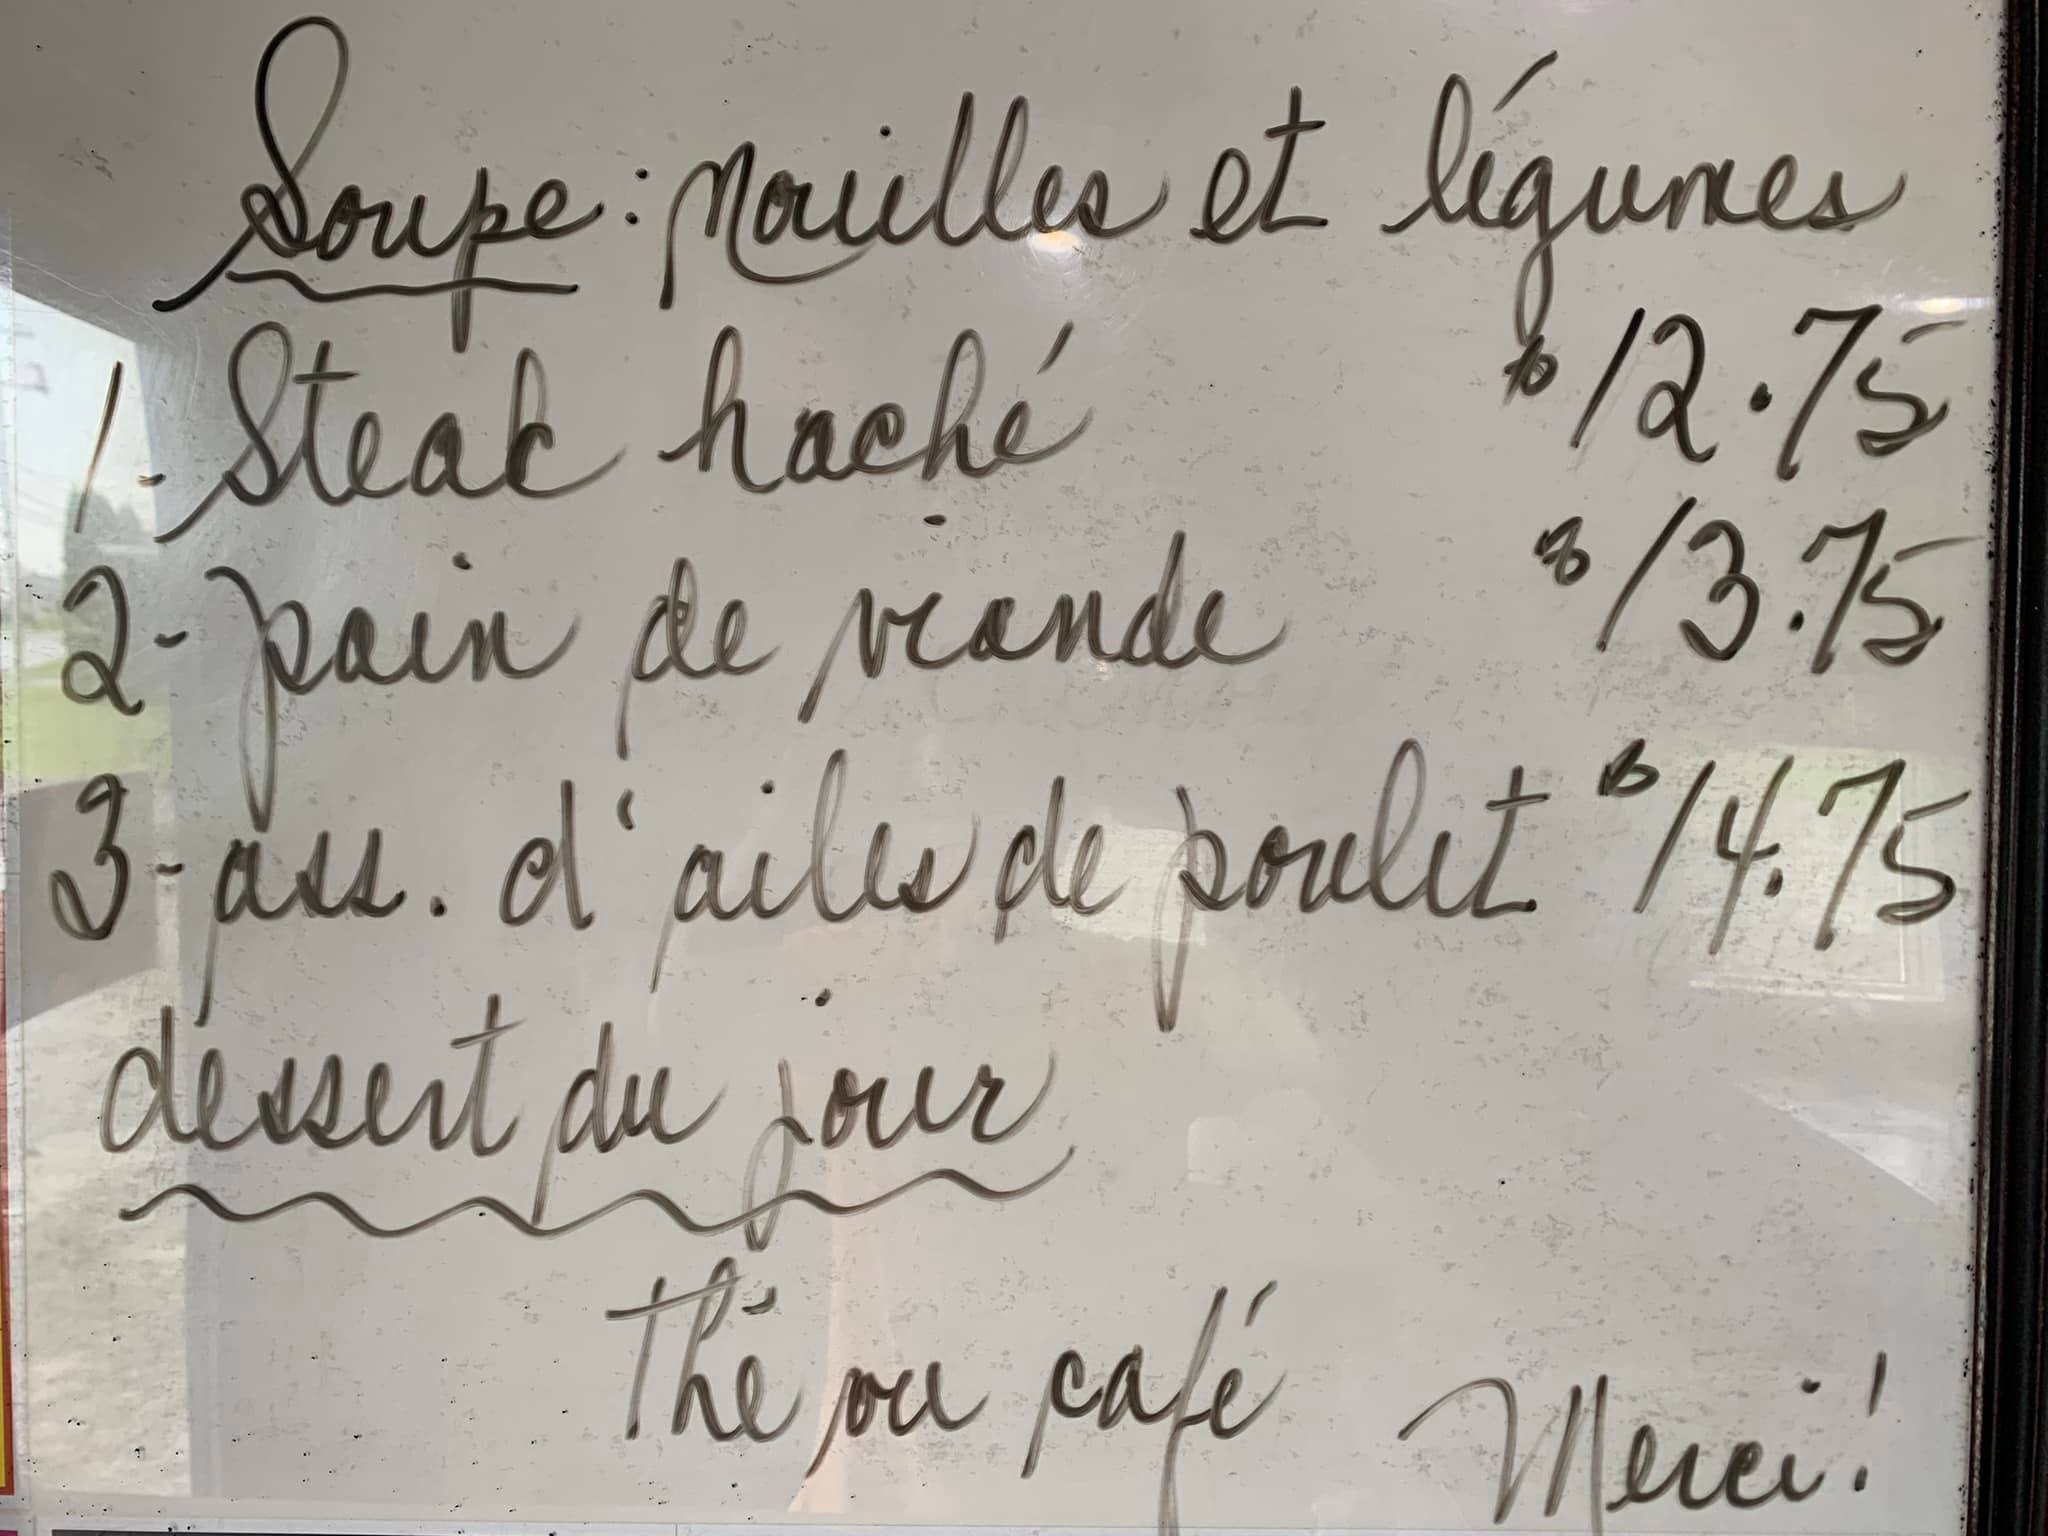 Soupe : Nouilles et légumes
1- Steak haché $12.75
2- pain de viande $13.75
3- ass. d'ailes de poulet $14.75
dessert du jour
Thé ou café
Merci!